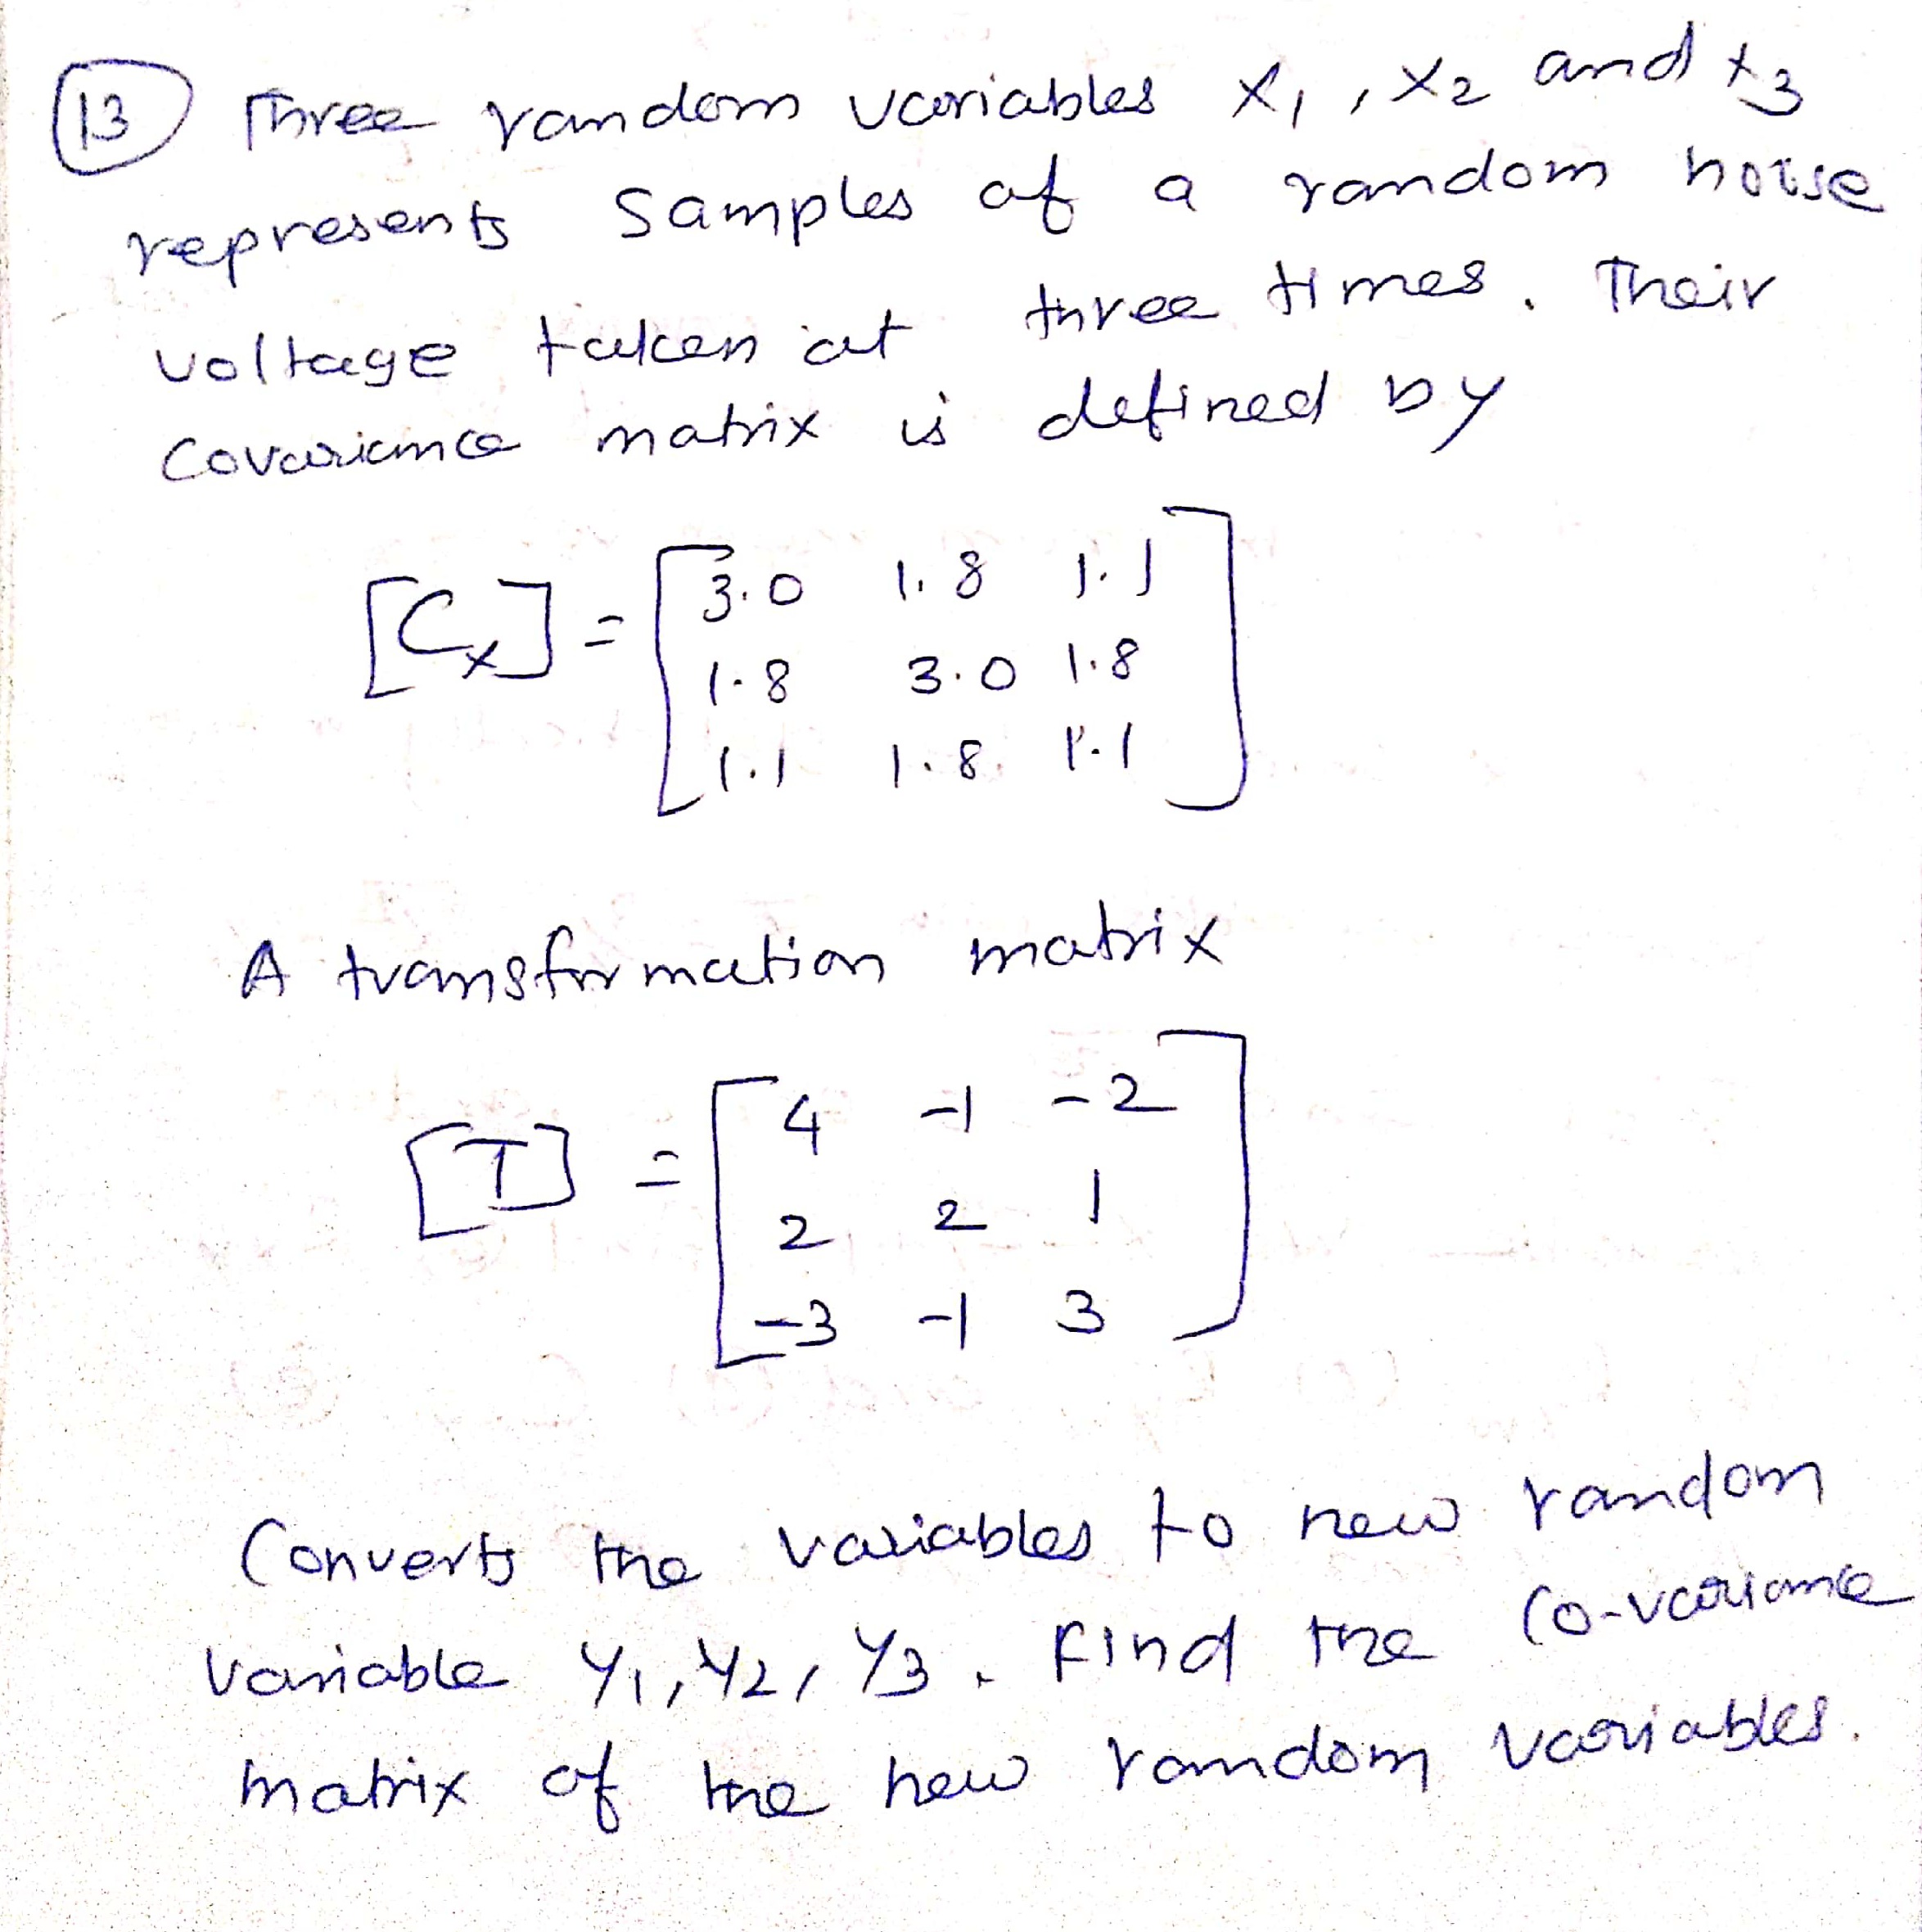 13 Three random variables X1, X2 and X3
represents samples of a random noise
voltage taken at three times. Their
covariance matrix is defined by
[Cx] = [3.0 1.8 1.1
1.8 3.0 1.8
1.1 1.8 1.1]
A transformation matrix
[T] = [4 -1 -2
2 2 1
-3 -1 3]
Converts the variables to new random
variable Y1, Y2, Y3. Find the co-variance
matrix of the new random variables.